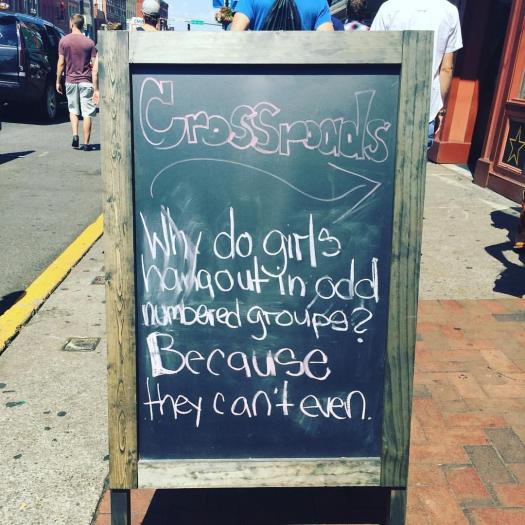 Crossroads
Why do girls
hangout in odd
numbered groups?
Because
they can't even.